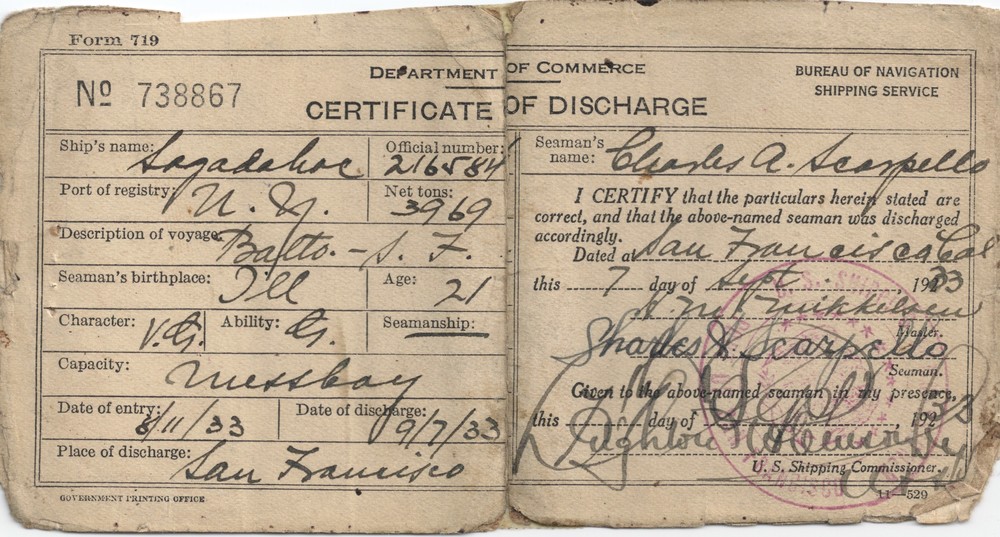 Form 719
DEPARTMENT OF COMMERCE
BUREAU OF NAVIGATION
SHIPPING SERVICE
No 738867
CERTIFICATE OF DISCHARGE
Ship's name: Sagadahoc
Official number: 216584
Port of registry: N. Y.
Net tons: 3969
Description of voyage: Balto. - S. F.
Seaman's birthplace: Ill
Age: 21
Character: V.G. Ability: G. Seamanship:
Capacity: Messboy
Date of entry: 8/11/33
Date of discharge: 9/7/33
Place of discharge: San Francisco
GOVERNMENT PRINTING OFFICE
Seaman's name: Charles A. Scarpello
I CERTIFY that the particulars herein stated are
correct, and that the above-named seaman was discharged
accordingly.
Dated at San Francisco Cal
this 7 day of Sept 1933
Mikkelsen
Master.
Charles A. Scarpello
Seaman.
Given to the above-named seaman in my presence,
this day of 192
U. S. Shipping Commissioner.
11—529